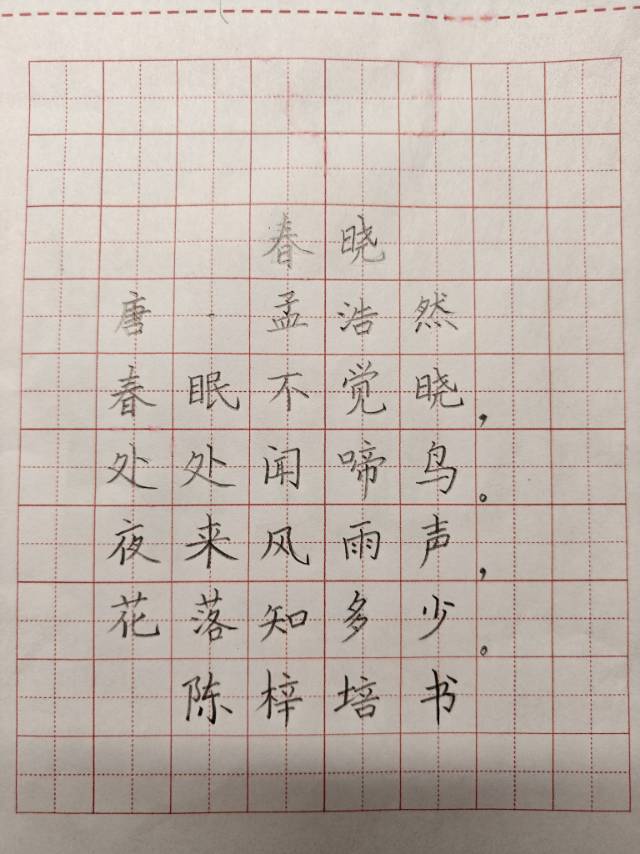 春晓
唐·孟浩然
春眠不觉晓，
处处闻啼鸟。
夜来风雨声，
花落知多少。
陈梓培书